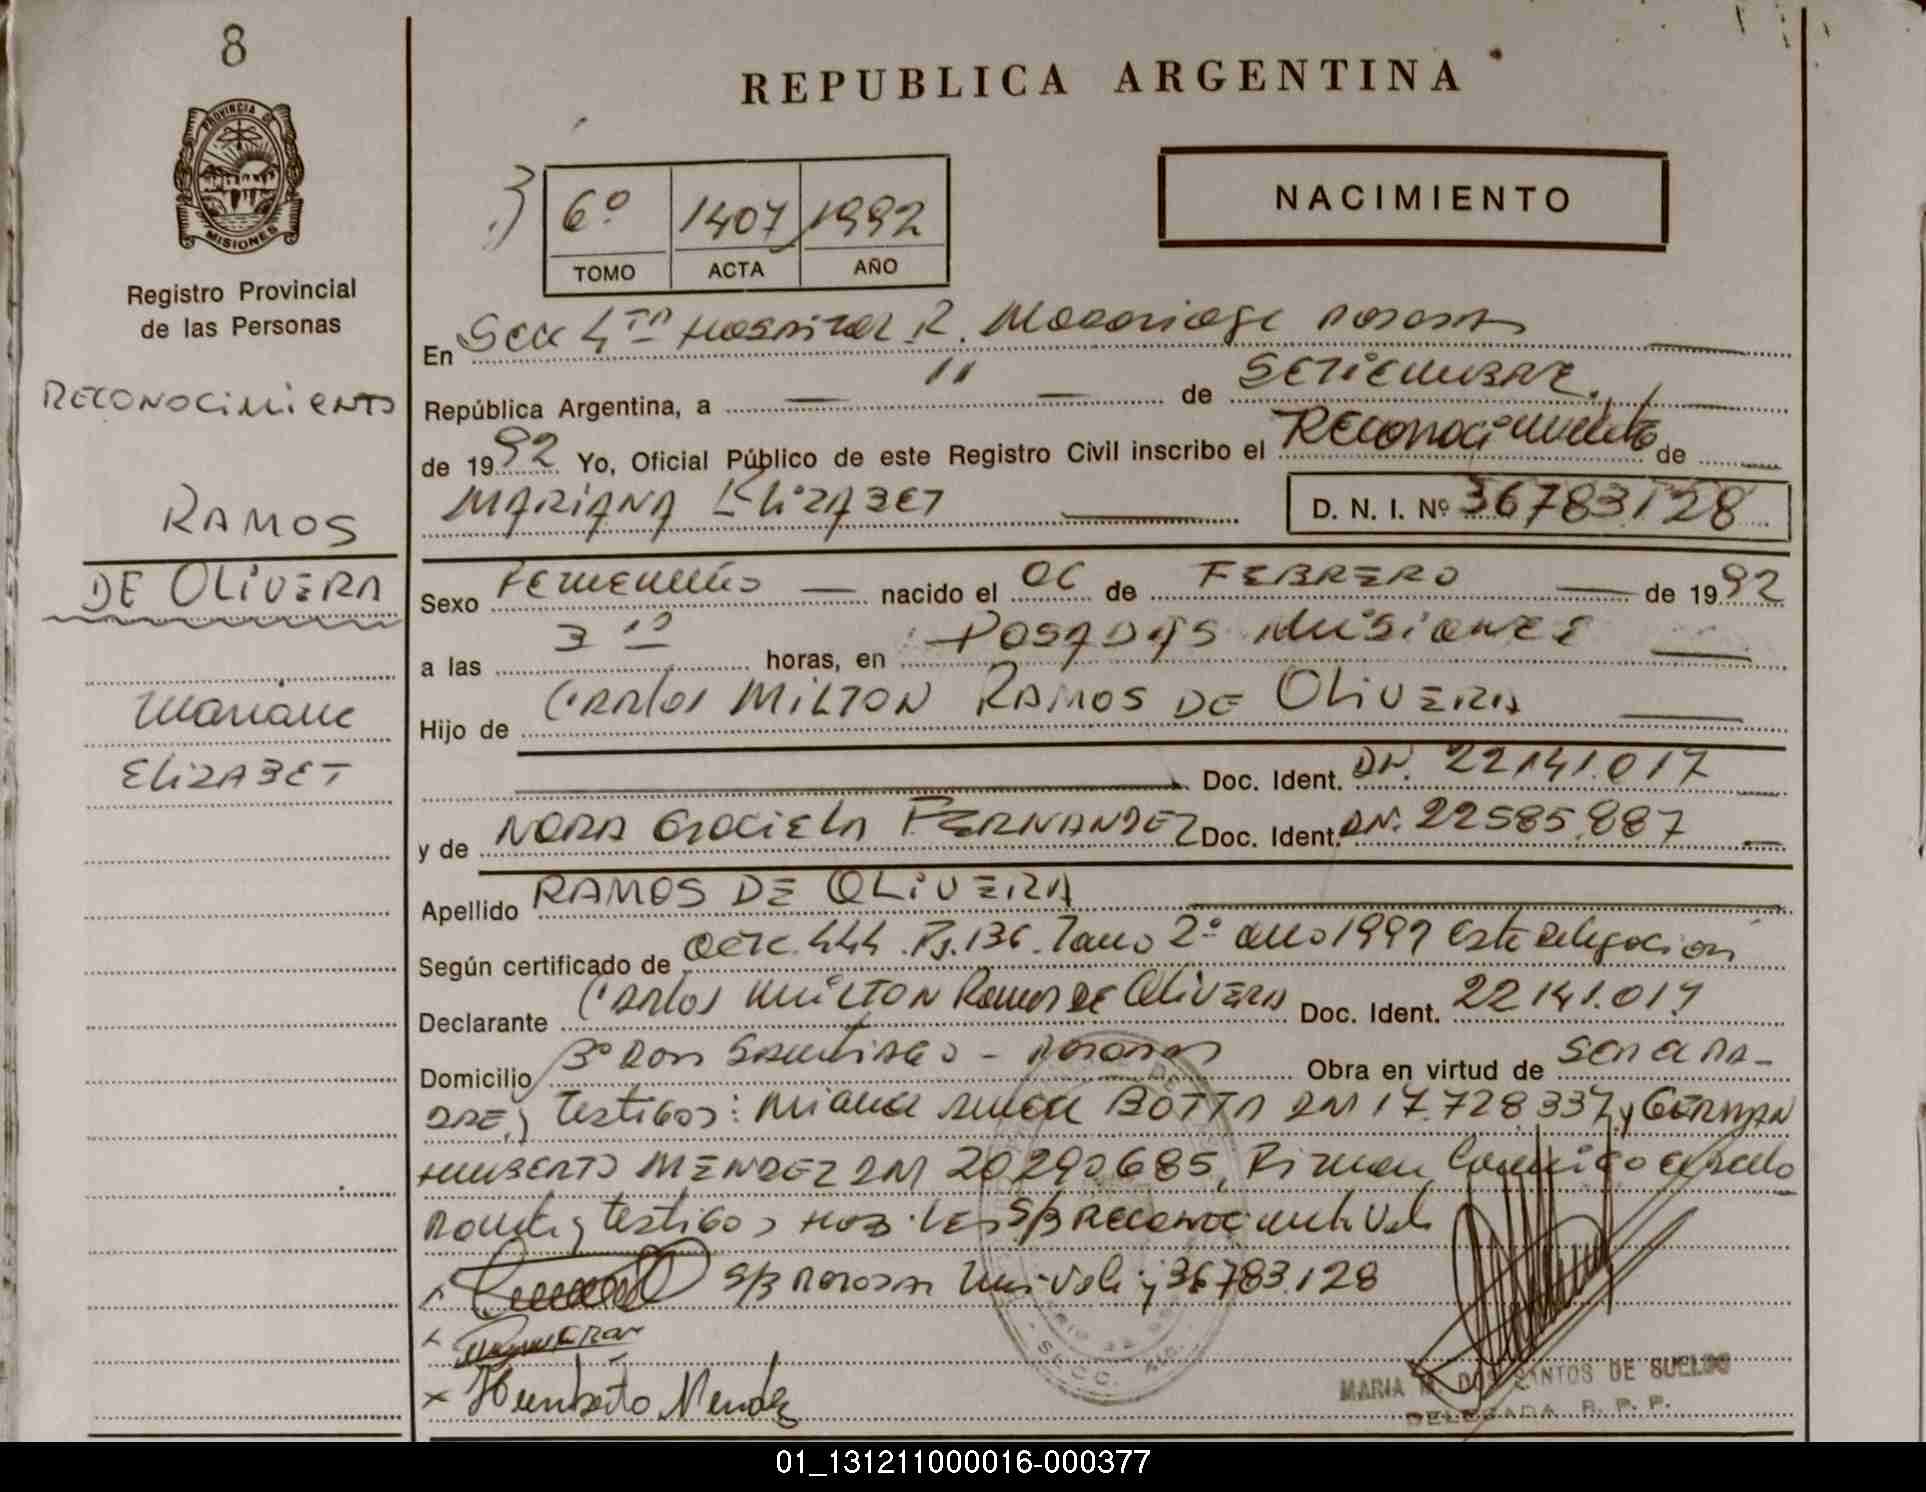 8
REPUBLICA ARGENTINA
PROVINCIA DE
MISIONES
Registro Provincial
de las Personas
NACIMIENTO
6º 1407 1992
TOMO ACTA AÑO
RECONOCIMIENTO
RAMOS
DE OLIVERA
Mariana
ELIZABET
En Secc 4ta Hospital R. Madariaga Posadas
República Argentina, a 11 de SETIEMBRE
de 1992 Yo, Oficial Público de este Registro Civil inscribo el Reconocimiento de
MARIANA ELIZABET D. N. I. Nº 36783128
Sexo Femenino nacido el 06 de FEBRERO de 1992
a las 3 10 horas, en POSADAS MISIONES
Hijo de Carlos MILTON RAMOS DE OLIVERA
Doc. Ident. DN. 22141.017
y de NORA Graciela FERNANDEZ Doc. Ident. DN. 22585.887
Apellido RAMOS DE OLIVEIRA
Según certificado de acta 444 Fs. 136 Tomo 2º año 1992 Esta delegacion
Declarante Carlos MILTON Ramos DE OLIVERA Doc. Ident. 22141.017
Domicilio Bº Don Santiago - Posadas Obra en virtud de Ser el PA-
DRE, y testigos: BOTTA DNI 17.728.337 y GERMAN
HUMBERTO MENDEZ DNI 20290685, Firman Conmigo el declarante
y testigos S/B Reconocimiento Vale
S/B Posadas Mis. Vale y 36783.128
Humberto Mendez
SECC.
MARIA M. DOS SANTOS DE SUELDO
DELEGADA R. P. P.
01_131211000016-000377